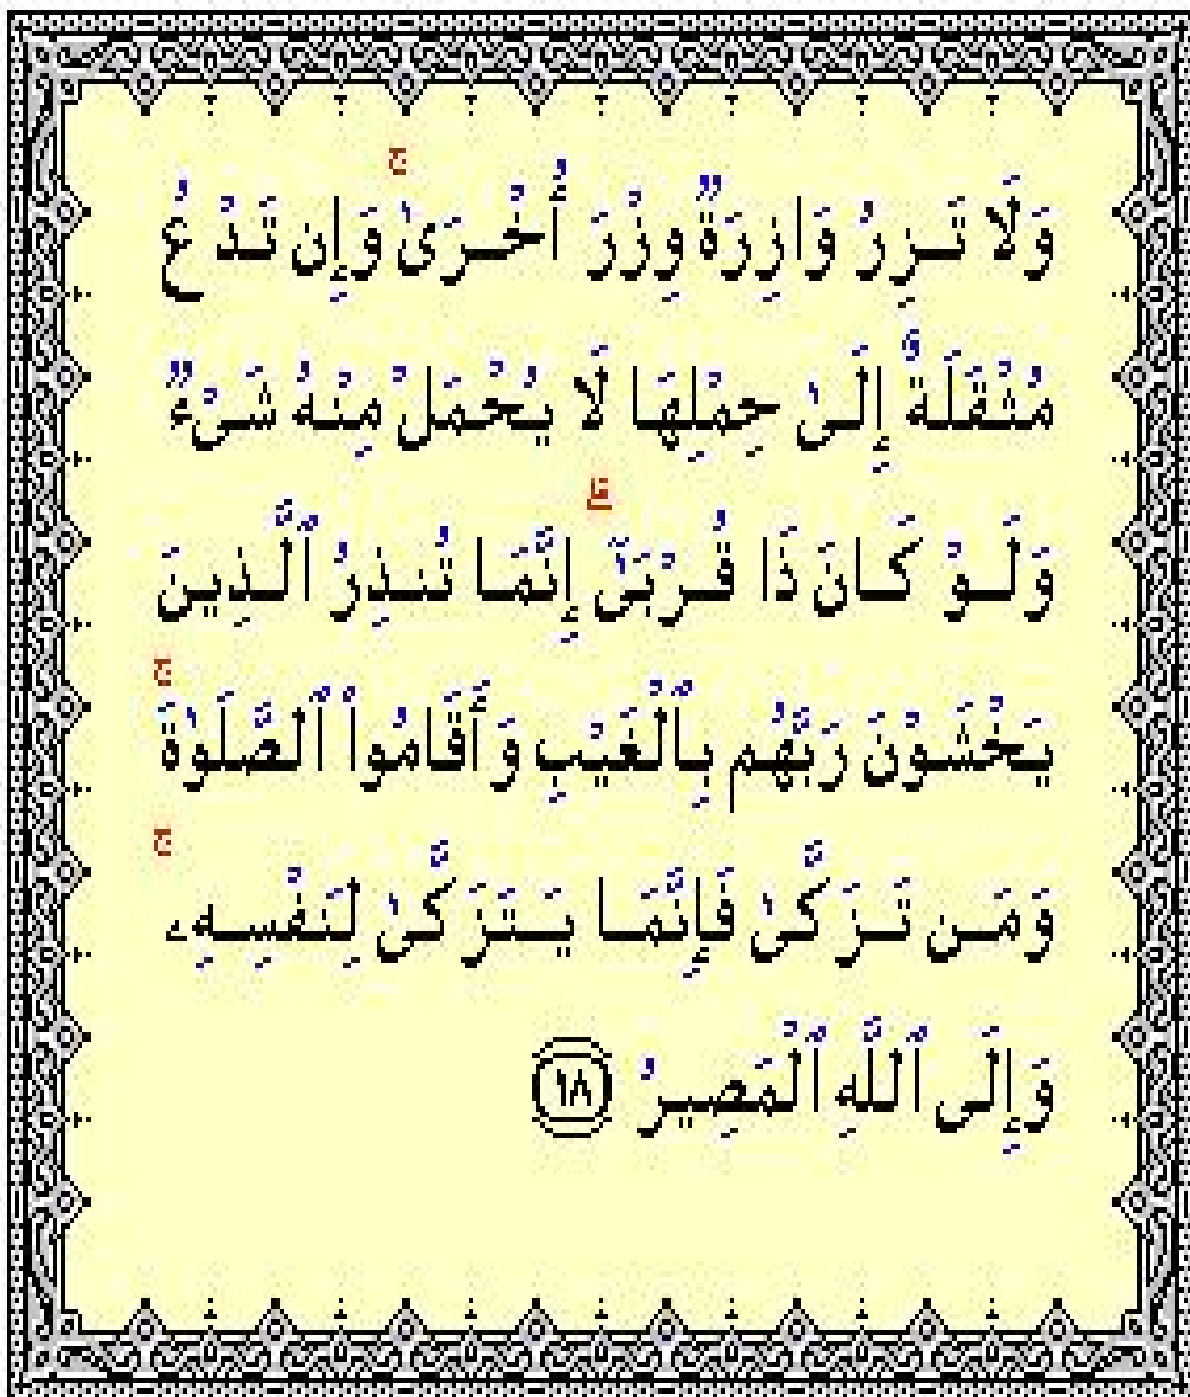 وَلَا تَزِرُ وَازِرَةٌ وِزْرَ أُخْرَىٰ ۚ وَإِن تَدْعُ
مُثْقَلَةٌ إِلَىٰ حِمْلِهَا لَا يُحْمَلْ مِنْهُ شَىْءٌ
وَلَوْ كَانَ ذَا قُرْبَىٰٓ ۗ إِنَّمَا تُنذِرُ ٱلَّذِينَ
يَخْشَوْنَ رَبَّهُم بِٱلْغَيْبِ وَأَقَامُوا۟ ٱلصَّلَوٰةَ ۚ
وَمَن تَزَكَّىٰ فَإِنَّمَا يَتَزَكَّىٰ لِنَفْسِهِۦ ۚ
وَإِلَى ٱللَّهِ ٱلْمَصِيرُ ١٨